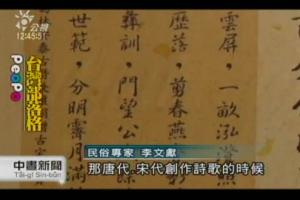 公視
12:45:51
PeoPo
台灣部落格
雲屏，一畝泓
歷落，剪春燕
彝訓，門望公
世範，分明霽月滿
民俗專家 李文獻
那唐代 宋代創作詩歌的時候
中晝新聞
Tâi-gí Sin-bûn